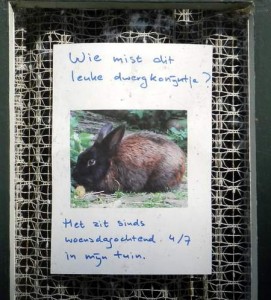 Wie mist dit
leuke dwergkonijntje?
Het zit sinds
woensdagochtend 4/7
in mijn tuin.